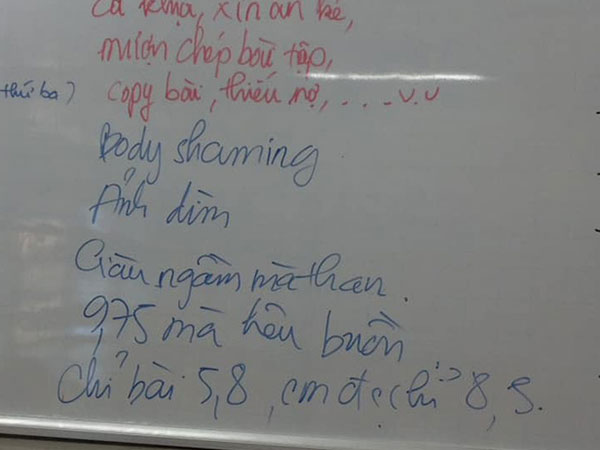 cà khịa, xin ăn ké,
mượn chép bài tập,
thứ ba) copy bài, thiếu nợ, . . . v.v
Body shaming
Ảnh dìm
Giàu ngầm mà than.
9,75 mà kêu buồn
Chỉ bài 5,8, em đc chỉ 8,5.